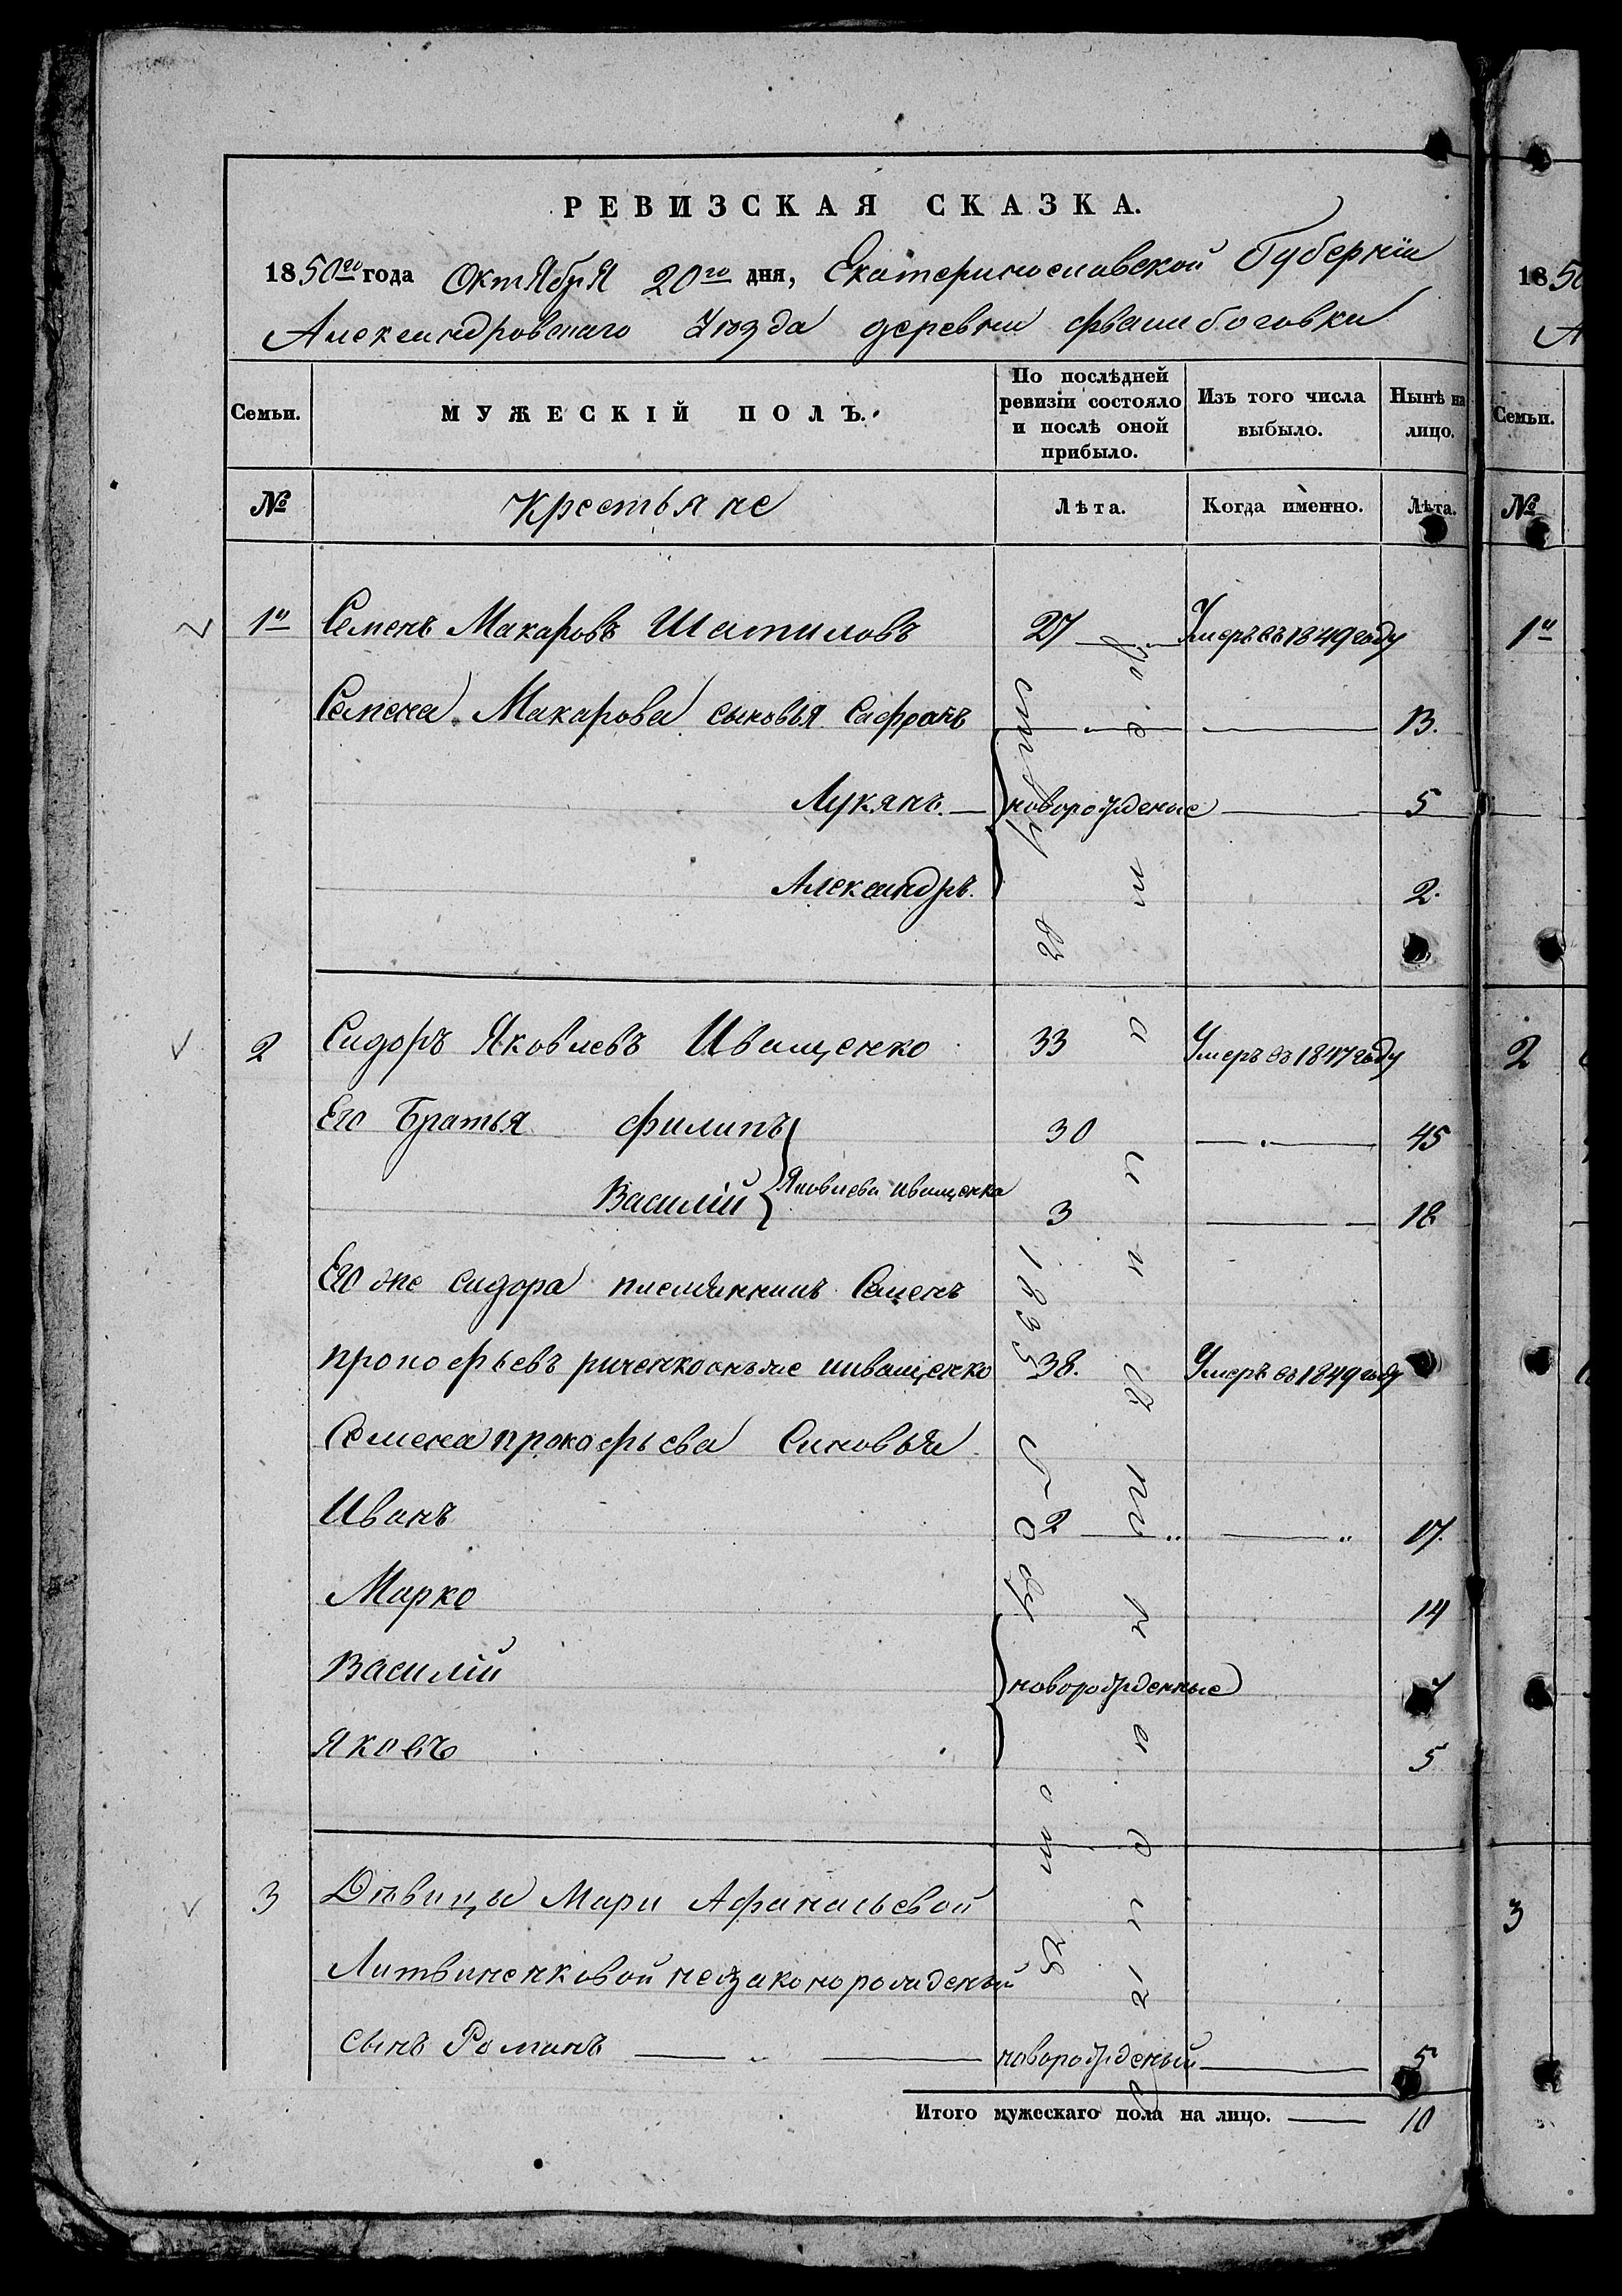 РЕВИЗСКАЯ СКАЗКА.
1850го года Октября 20го дня, Екатеринославской Губернiи
Александровскаго Уезда деревни
Семьи.
МУЖЕСКІЙ ПОЛЪ.
По послѣдней ревизіи состояло и послѣ оной прибыло.
Изъ того числа выбыло.
Нынѣ на лицо.
№
Крестьяне
Лѣта.
Когда именно.
Лѣта.
1й Семенъ Макаровъ Шатиловъ 27 Умеръ въ 1849 году
Семена Макарова сыновья Сафронъ 13.
Лукянъ. новорожденые 5
Александръ. 2.
2 Сидоръ Яковлевъ Иващенко 33 Умеръ въ 1847 году
Его Братья Филипъ 30 45
Василій Яковлева иващенка 3 18
Его же сидора племянникъ Семенъ
прокофьевъ онъже иващенко 38. Умеръ въ 1849 году
Семена прокофьева Синовья
Иванъ 2 17.
Марко 14
Василій новорожденные
Яковъ 5
3 Дѣвицы Мари Афанасьевой
Литвиненковой незаконорожденый
сынъ Романъ новорожденый 5
Итого мужескаго пола на лицо. 10
1850
А
Семьи.
№
1й
2
3